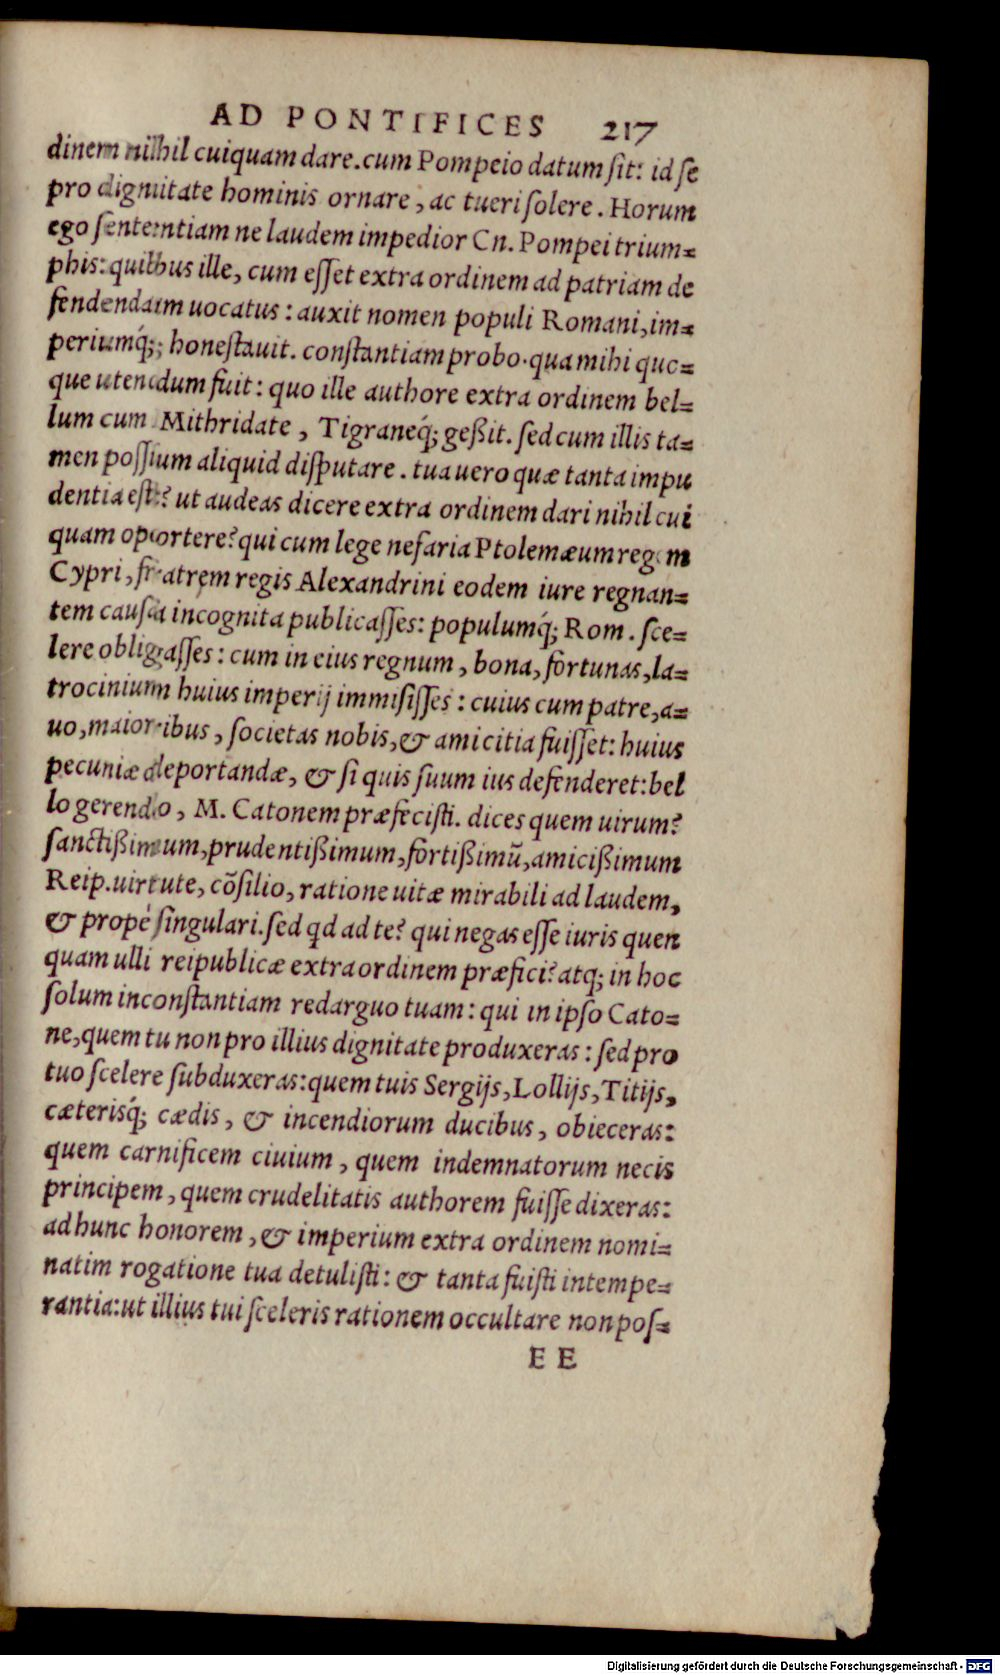 AD PONTIFICES 217
dinem nihil cuiquam dare. cum Pompeio datum ſit: id ſe
pro dignitate hominis ornare, ac tueri ſolere. Horum
ego ſententiam ne laudem impedior Cn. Pompei trium=
phis: quibus ille, cum eſſet extra ordinem ad patriam de
fendendam uocatus: auxit nomen populi Romani, im=
periumq́; honeſtauit. conſtantiam probo. qua mihi quo=
que utendum fuit: quo ille authore extra ordinem bel=
lum cum Mithridate, Tigraneq́; geßit. ſed cum illis ta=
men poſſum aliquid diſputare. tua uero quæ tanta impu
dentia eſt? ut audeas dicere extra ordinem dari nihil cui
quam oportere? qui cum lege nefaria Ptolemæum regem
Cypri, fratrem regis Alexandrini eodem iure regnan=
tem cauſa incognita publicaſſes: populumq́; Rom. ſce=
lere obligaſſes: cum in eius regnum, bona, fortunas, la=
trocinium huius imperij immiſiſſes: cuius cum patre, a=
uo, maioribus, ſocietas nobis, & amicitia fuiſſet: huius
pecuniæ deportandæ, & ſi quis ſuum ius defenderet: bel
lo gerendo, M. Catonem præfeciſti. dices quem uirum?
ſanctißimum, prudentißimum, fortißimũ, amicißimum
Reip. uirtute, cõſilio, ratione uitæ mirabili ad laudem,
& propè ſingulari. ſed qd ad te? qui negas eſſe iuris quen
quam ulli reipublicæ extra ordinem præfici? atq; in hoc
ſolum inconſtantiam redarguo tuam: qui in ipſo Cato=
ne, quem tu non pro illius dignitate produxeras: ſed pro
tuo ſcelere ſubduxeras: quem tuis Sergijs, Lollijs, Titijs,
cæterisq́; cædis, & incendiorum ducibus, obieceras:
quem carnificem ciuium, quem indemnatorum necis
principem, quem crudelitatis authorem fuiſſe dixeras:
ad hunc honorem, & imperium extra ordinem nomi=
natim rogatione tua detuliſti: & tanta fuiſti intempe=
rantia: ut illius tui ſceleris rationem occultare non poſ=
E E
Digitalisierung gefördert durch die Deutsche Forschungsgemeinschaft - DFG